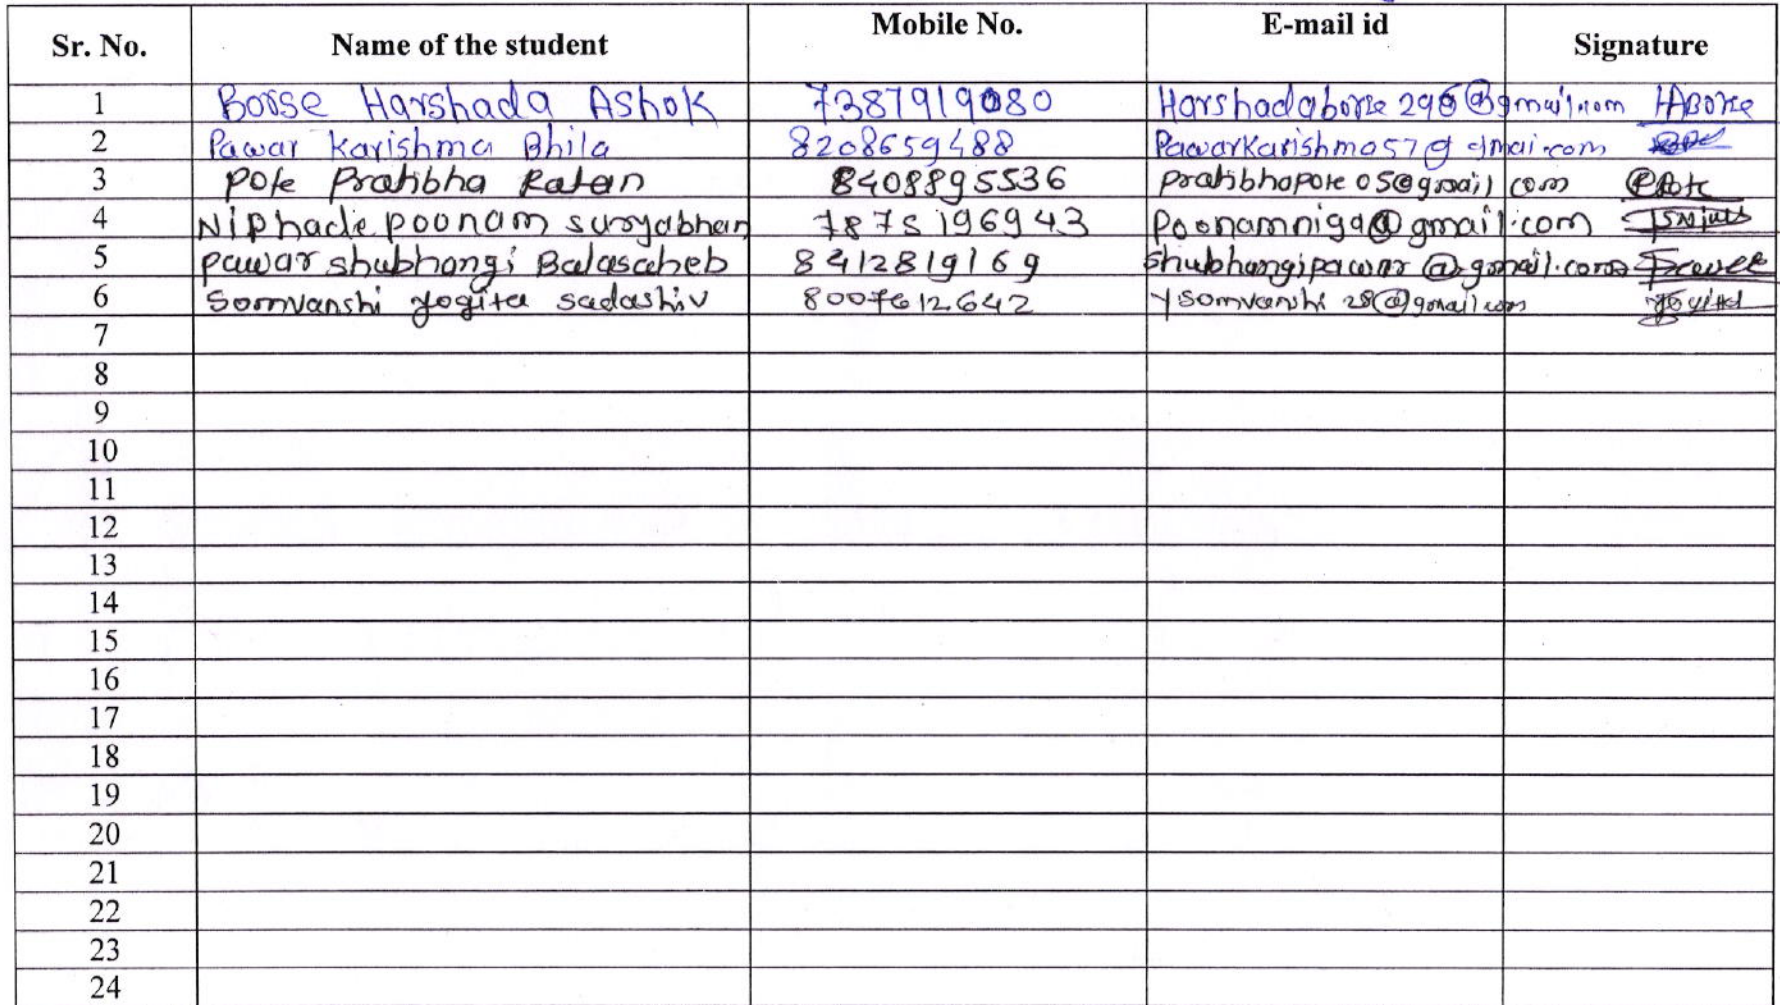 Sr. No. Name of the student Mobile No. E-mail id Signature
1 Borse Harshada Ashok 7387919080 Harshadaborse296@gmail.com HABorse
2 Pawar Karishma Bhila 8208659488 PawarKarishma57@gmai.com
3 Pote Pratibha Ratan 8408895536 pratibhapote05@gmail.com PPote
4 Niphade poonam suryabhan 7875196943 Poonamniga@gmail.com
5 pawar shubhangi Balasaheb 8412819169 Shubhangipawar@gmail.com
6 Somvanshi yogita sadashiv 8007612642 ysomvanshi28@gmail.com
7
8
9
10
11
12
13
14
15
16
17
18
19
20
21
22
23
24